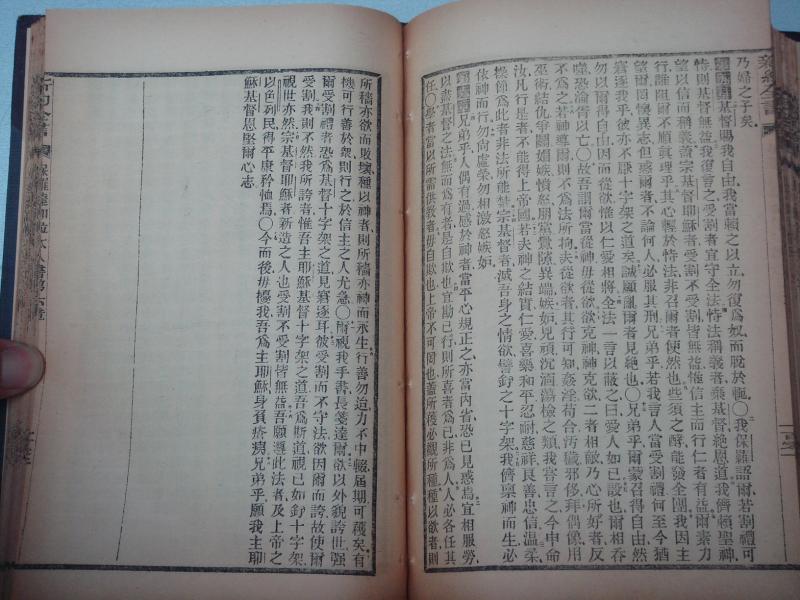 新約全書
乃婦之子矣
基督賜我自由當賴之以立勿復為奴而脫於軛〇我保羅語爾若割禮可
恃則基督無益我復言之受割者宜守全法恃法稱義者棄基督絕恩道我儕賴聖神
望以信而稱義蓋宗基督耶穌者受割不受割皆無益惟信主而行仁者有益爾素力
行誰阻爾不順眞理乎其心輕於恃法非召爾者使然也些須之酵能發全團我因主
望爾罔懷異志但惑爾者不論何人必服其刑兄弟乎若我言人當受割禮何至今猶
窘逐我乎彼亦不嫌十字架之道矣誠願亂爾者見絕也〇兄弟乎爾蒙召得自由然
勿以得自由因而從欲惟以仁愛相將全法一言以蔽之曰愛人如己設也爾相吞
噬恐淪胥以亡〇故吾謂爾當從神毋從欲欲克神神克欲二者相敵乃心所好者反
不為之若神導爾則不為法所拘夫從欲者其行可知姦淫苟合汚穢邪侈拜偶像用
巫術結仇爭鬬媢嫉憤怒朋黨釁隙異端嫉妒兇頑沉湎蕩檢之類我嘗言之今申命
汝凡行是者不能得上帝國若夫神之結實仁愛喜樂和平忍耐慈祥良善忠信溫柔
操節為此者非法所能禁宗基督者滅吾身之情欲譬釘之十字架我儕禀神而生必
依神而行勿向虛榮勿相激怒嫉妒
兄弟乎人偶有過感於神者當平心規正之亦當內省恐已見惑焉宜相服勞
以盡基督之法無而為有者是自欺也宜勘已行則所喜者為已非為人人必各任其
任〇學者當以所需供教者毋自欺也上帝不可罔也蓋所穫必觀所種種以欲者則
所穡亦欲而敗壞種以神者則所穡亦神而永生行善勿迨力不中輟屆期可穫矣有
機可行善於衆則行之於信主之人尤急〇爾視我手書長箋達爾欲以外貌誇世强
爾受割禮者恐為基督十字架之道見窘逐耳彼受割而不守法欲因爾而誇故使爾
受割我則不然我所誇者惟吾主耶穌基督十字架之道吾為斯道視已如釘十字架
視世亦然宗基督耶穌者新造之人也受割不受割皆無益吾願遵此法者及上帝之
以色列民得平康矜恤焉〇今而後毋擾我吾為主耶穌身負疮痍兄弟乎願我主耶
穌基督恩堅爾心志
新約全書